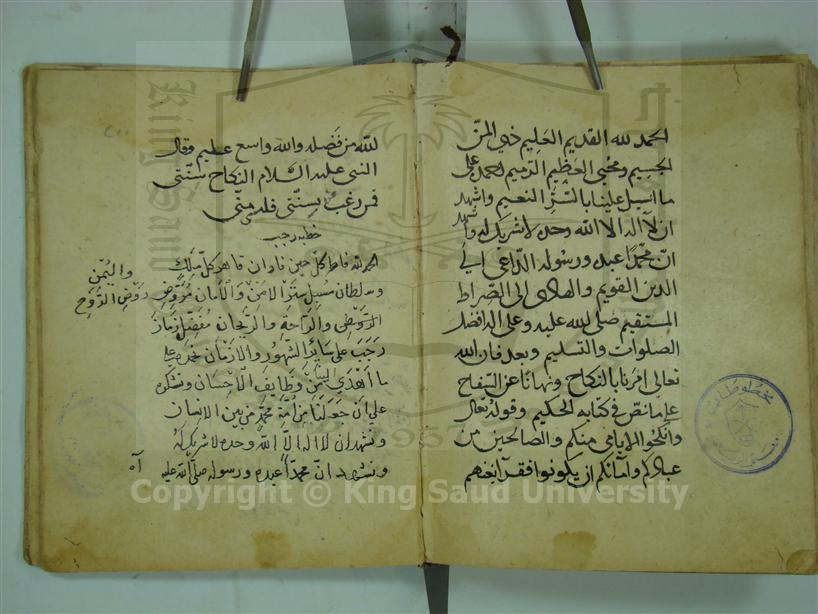 الحمد لله القديم العليم ذي المنّ
الجسيم ومحيي العظيم الرميم نحمده على
ما اسبل علينا بالستر النعيم واشهد
ان لا اله الا الله وحده لا شريك له واشهد
انّ محمّدًا عبده ورسوله الدّاعي الي
الدين القويم والهادي الى الصّراط
المستقيم صلى الله عليه وعلى اله افضل
الصلوات والتسليم وبعد فان الله
تعالى امرنا بالنكاح ونهانا عن السّفاح
على ما نصّ في كتابه الحكيم وقوله تعالى
وانكحوا الايامى منكم والصالحين من
عبادكم وامائكم ان يكونوا فقرآ يغنهم
الله من فضله والله واسع عليم وقال
النبي عليه السّلام النكاح سنّتى
فمن رغب بسنّتى فليس منّي
خطبه رجب
الحمد لله فاطر كلّ حين واوان قاهر كلّ ملك
وسلطان مسبل ستر الامن والامان مروّض
واليُمن
روض الدّوح
الرّوض والرّاحة والرّيحان مفضّل زمان
رجب على سائر الشهور والازمان نحمده على
ما اهدى الينا من وظايف الاحسان ونشكره
على ان جعلنا من امّة محمّد من بين الانسان
ونشهد ان لا اله الاّ الله وحده لا شريك له
ونشهد انّ محمّداً عبده ورسوله صلّى الله عليه
Copyright © King Saud University
King Saud
1957